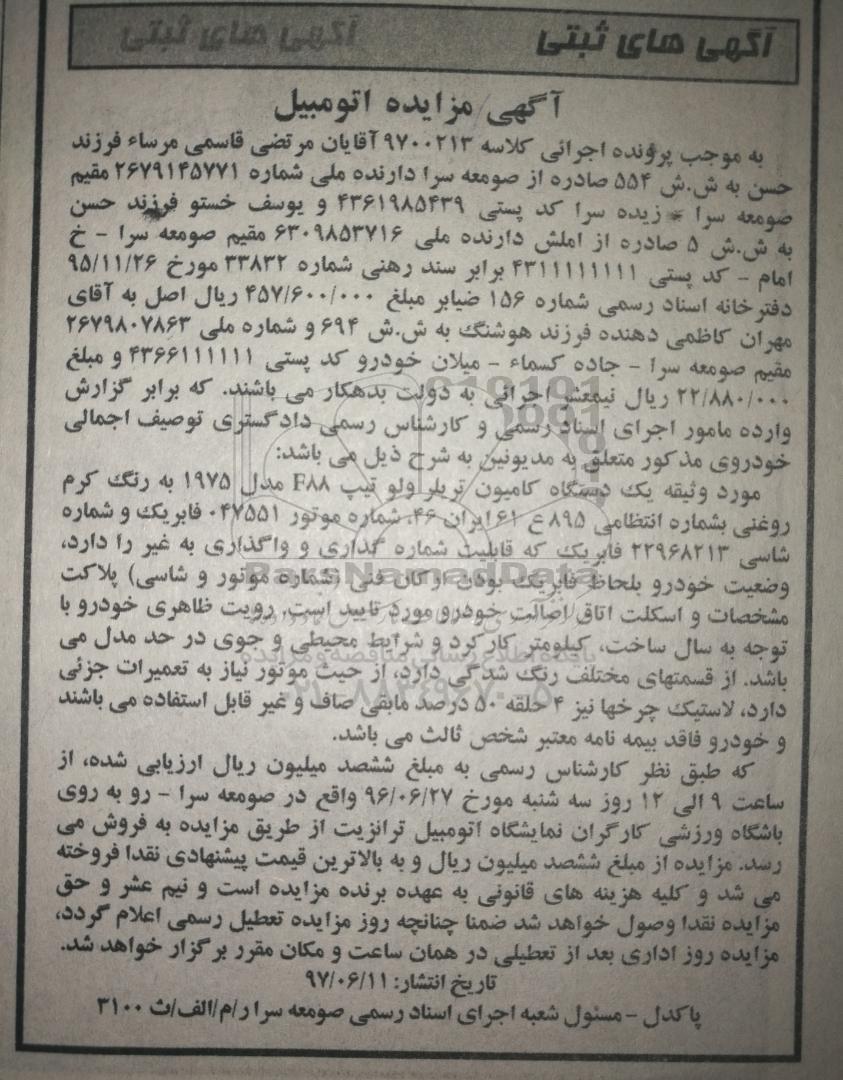 آگهی های ثبتی
آگهی مزایده اتومبیل
به موجب پرونده اجرائی کلاسه ۹۷۰۰۲۱۳ آقایان مرتضی قاسمی مرساء فرزند
حسن به ش.ش ۵۵۴ صادره از صومعه سرا دارنده ملی شماره ۲۶۷۹۱۴۵۷۷۱ مقیم
صومعه سرا - زیده سرا کد پستی ۴۳۶۱۹۸۵۴۳۹ و یوسف خستو فرزند حسن
به ش.ش ۵ صادره از املش دارنده ملی ۶۳۰۹۸۵۳۷۱۶ مقیم صومعه سرا - خ
امام - کد پستی ۴۳۱۱۱۱۱۱۱۱ برابر سند رهنی شماره ۳۳۸۳۲ مورخ ۹۵/۱۱/۲۶
دفترخانه اسناد رسمی شماره ۱۵۶ ضیابر مبلغ ۴۵۷/۶۰۰/۰۰۰ ریال اصل به آقای
مهران کاظمی دهنده فرزند هوشنگ به ش.ش ۶۹۴ و شماره ملی ۲۶۷۹۸۰۷۸۶۳
مقیم صومعه سرا - جاده کسماء - میلان خودرو کد پستی ۴۳۶۶۱۱۱۱۱۱ و مبلغ
۲۲/۸۸۰/۰۰۰ ریال نیمعشر اجرائی به دولت بدهکار می باشند. که برابر گزارش
وارده مامور اجرای اسناد رسمی و کارشناس رسمی دادگستری توصیف اجمالی
خودروی مذکور متعلق به مدیونین به شرح ذیل می باشد:
مورد وثیقه یک دستگاه کامیون تریلر ولو تیپ F۸۸ مدل ۱۹۷۵ به رنگ کرم
روغنی بشماره انتظامی ۸۹۵ ع ۶۱ ایران ۴۶، شماره موتور ۰۴۷۵۵۱ فابریک و شماره
شاسی ۲۲۹۶۸۲۱۳ فابریک که قابلیت شماره گذاری و واگذاری به غیر را دارد،
وضعیت خودرو بلحاظ فابریک بودن ارکان فنی (شماره موتور و شاسی) پلاکت
مشخصات و اسکلت اتاق اصالت خودرو مورد تایید است، رویت ظاهری خودرو با
توجه به سال ساخت، کیلومتر کارکرد و شرایط محیطی و جوی در حد مدل می
باشد. از قسمتهای مختلف رنگ شدگی دارد، از حیث موتور نیاز به تعمیرات جزئی
دارد، لاستیک چرخها نیز ۴ حلقه ۵۰ درصد مابقی صاف و غیر قابل استفاده می باشند
و خودرو فاقد بیمه نامه معتبر شخص ثالث می باشد.
که طبق نظر کارشناس رسمی به مبلغ ششصد میلیون ریال ارزیابی شده، از
ساعت ۹ الی ۱۲ روز سه شنبه مورخ ۹۶/۰۶/۲۷ واقع در صومعه سرا - رو به روی
باشگاه ورزشی کارگران نمایشگاه اتومبیل ترانزیت از طریق مزایده به فروش می
رسد. مزایده از مبلغ ششصد میلیون ریال و به بالاترین قیمت پیشنهادی نقدا فروخته
می شد و کلیه هزینه های قانونی به عهده برنده مزایده است و نیم عشر و حق
مزایده نقدا وصول خواهد شد ضمنا چنانچه روز مزایده تعطیل رسمی اعلام گردد،
مزایده روز اداری بعد از تعطیلی در همان ساعت و مکان مقرر برگزار خواهد شد.
تاریخ انتشار: ۹۷/۰۶/۱۱
پاکدل - مسئول شعبه اجرای اسناد رسمی صومعه سرا ر/م/الف/ث ۳۱۰۰
ParsNamadData